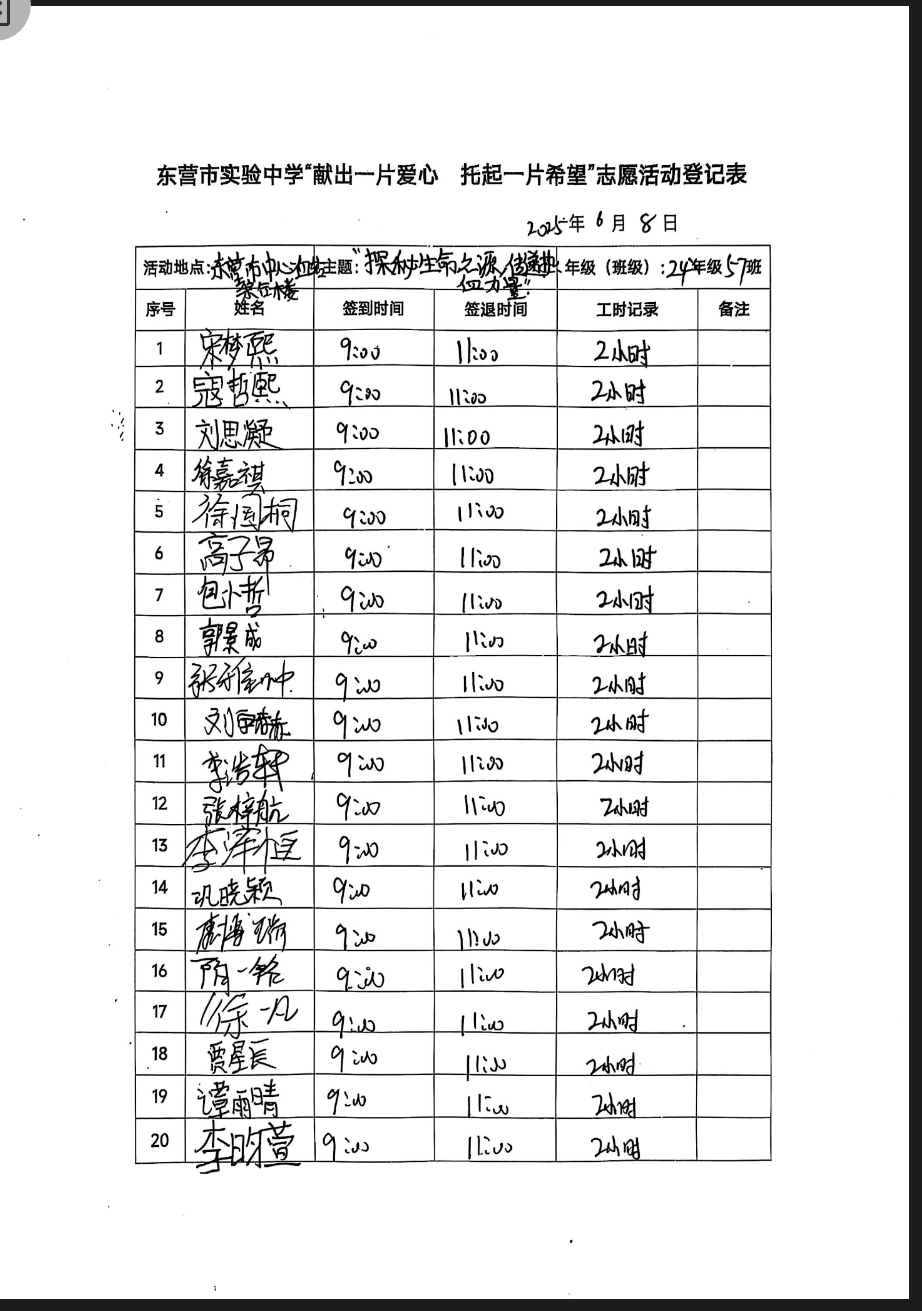 东营市实验中学“献出一片爱心 托起一片希望”志愿活动登记表
2025年 6 月 8 日
活动地点:东营市中心血站采血楼 主题:“探秘生命之源,传递热血力量” 年级(班级):24年级57班
序号 姓名 签到时间 签退时间 工时记录 备注
1 宋梦熙 9:00 11:00 2小时
2 寇哲熙 9:00 11:00 2小时
3 刘思凝 9:00 11:00 2小时
4 徐嘉祺 9:00 11:00 2小时
5 徐国桐 9:00 11:00 2小时
6 高子昂 9:00 11:00 2小时
7 包小哲 9:00 11:00 2小时
8 郭景成 9:00 11:00 2小时
9 9:00 11:00 2小时
10 9:00 11:00 2小时
11 李浩轩 9:00 11:00 2小时
12 张梓航 9:00 11:00 2小时
13 李泽恒 9:00 11:00 2小时
14 巩晓颖 9:00 11:00 2小时
15 9:00 11:00 2小时
16 隋一铭 9:00 11:00 2小时
17 徐一凡 9:00 11:00 2小时
18 贾星辰 9:00 11:00 2小时
19 谭雨晴 9:00 11:00 2小时
20 李昀萱 9:00 11:00 2小时